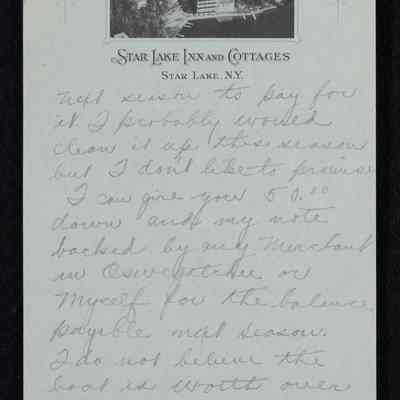 STAR LAKE INN AND COTTAGES
STAR LAKE, N.Y.
next season to pay for
it. I probably would
clean it up this season
but I don't like to promise
I can give you 50.00
down and my note
backed by any Merchant
in Oswegatchie or
Myself for the balance
payable next season.
I do not believe the
boat is worth over